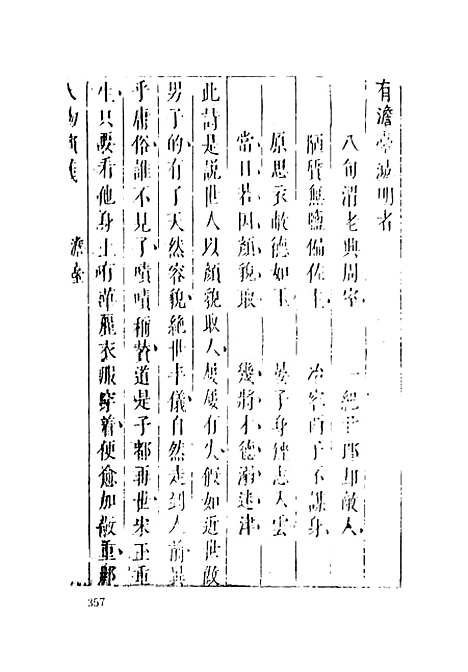 有澹臺滅明者
八旬渭老興周室 一絕
陋質無鹽備佐王 冶容西子不謀身
原思衣敝德如玉 晏子身矬志入雲
當日若因顏貌取 幾將才德溺迷津
此詩是說世人以顏貌取人屡屡有失假如近世做
男子的有了天然容貌絕世丰儀自然走到人前異
乎庸俗誰不見了嘖嘖稱贊道是子都再世宋玉重
生只要看他身上有華麗衣服穿着便愈加敬重鄙
人物演義 澹臺
357